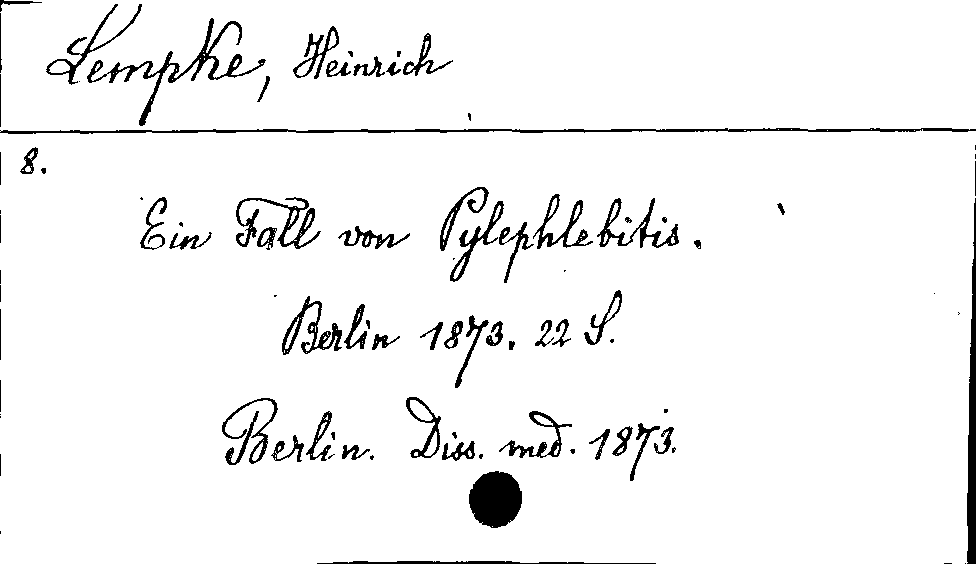 Lempke, Heinrich
8.
Ein Fall von Pylephlebitis.
Berlin 1873. 22 S.
Berlin. Diss. med. 1873.